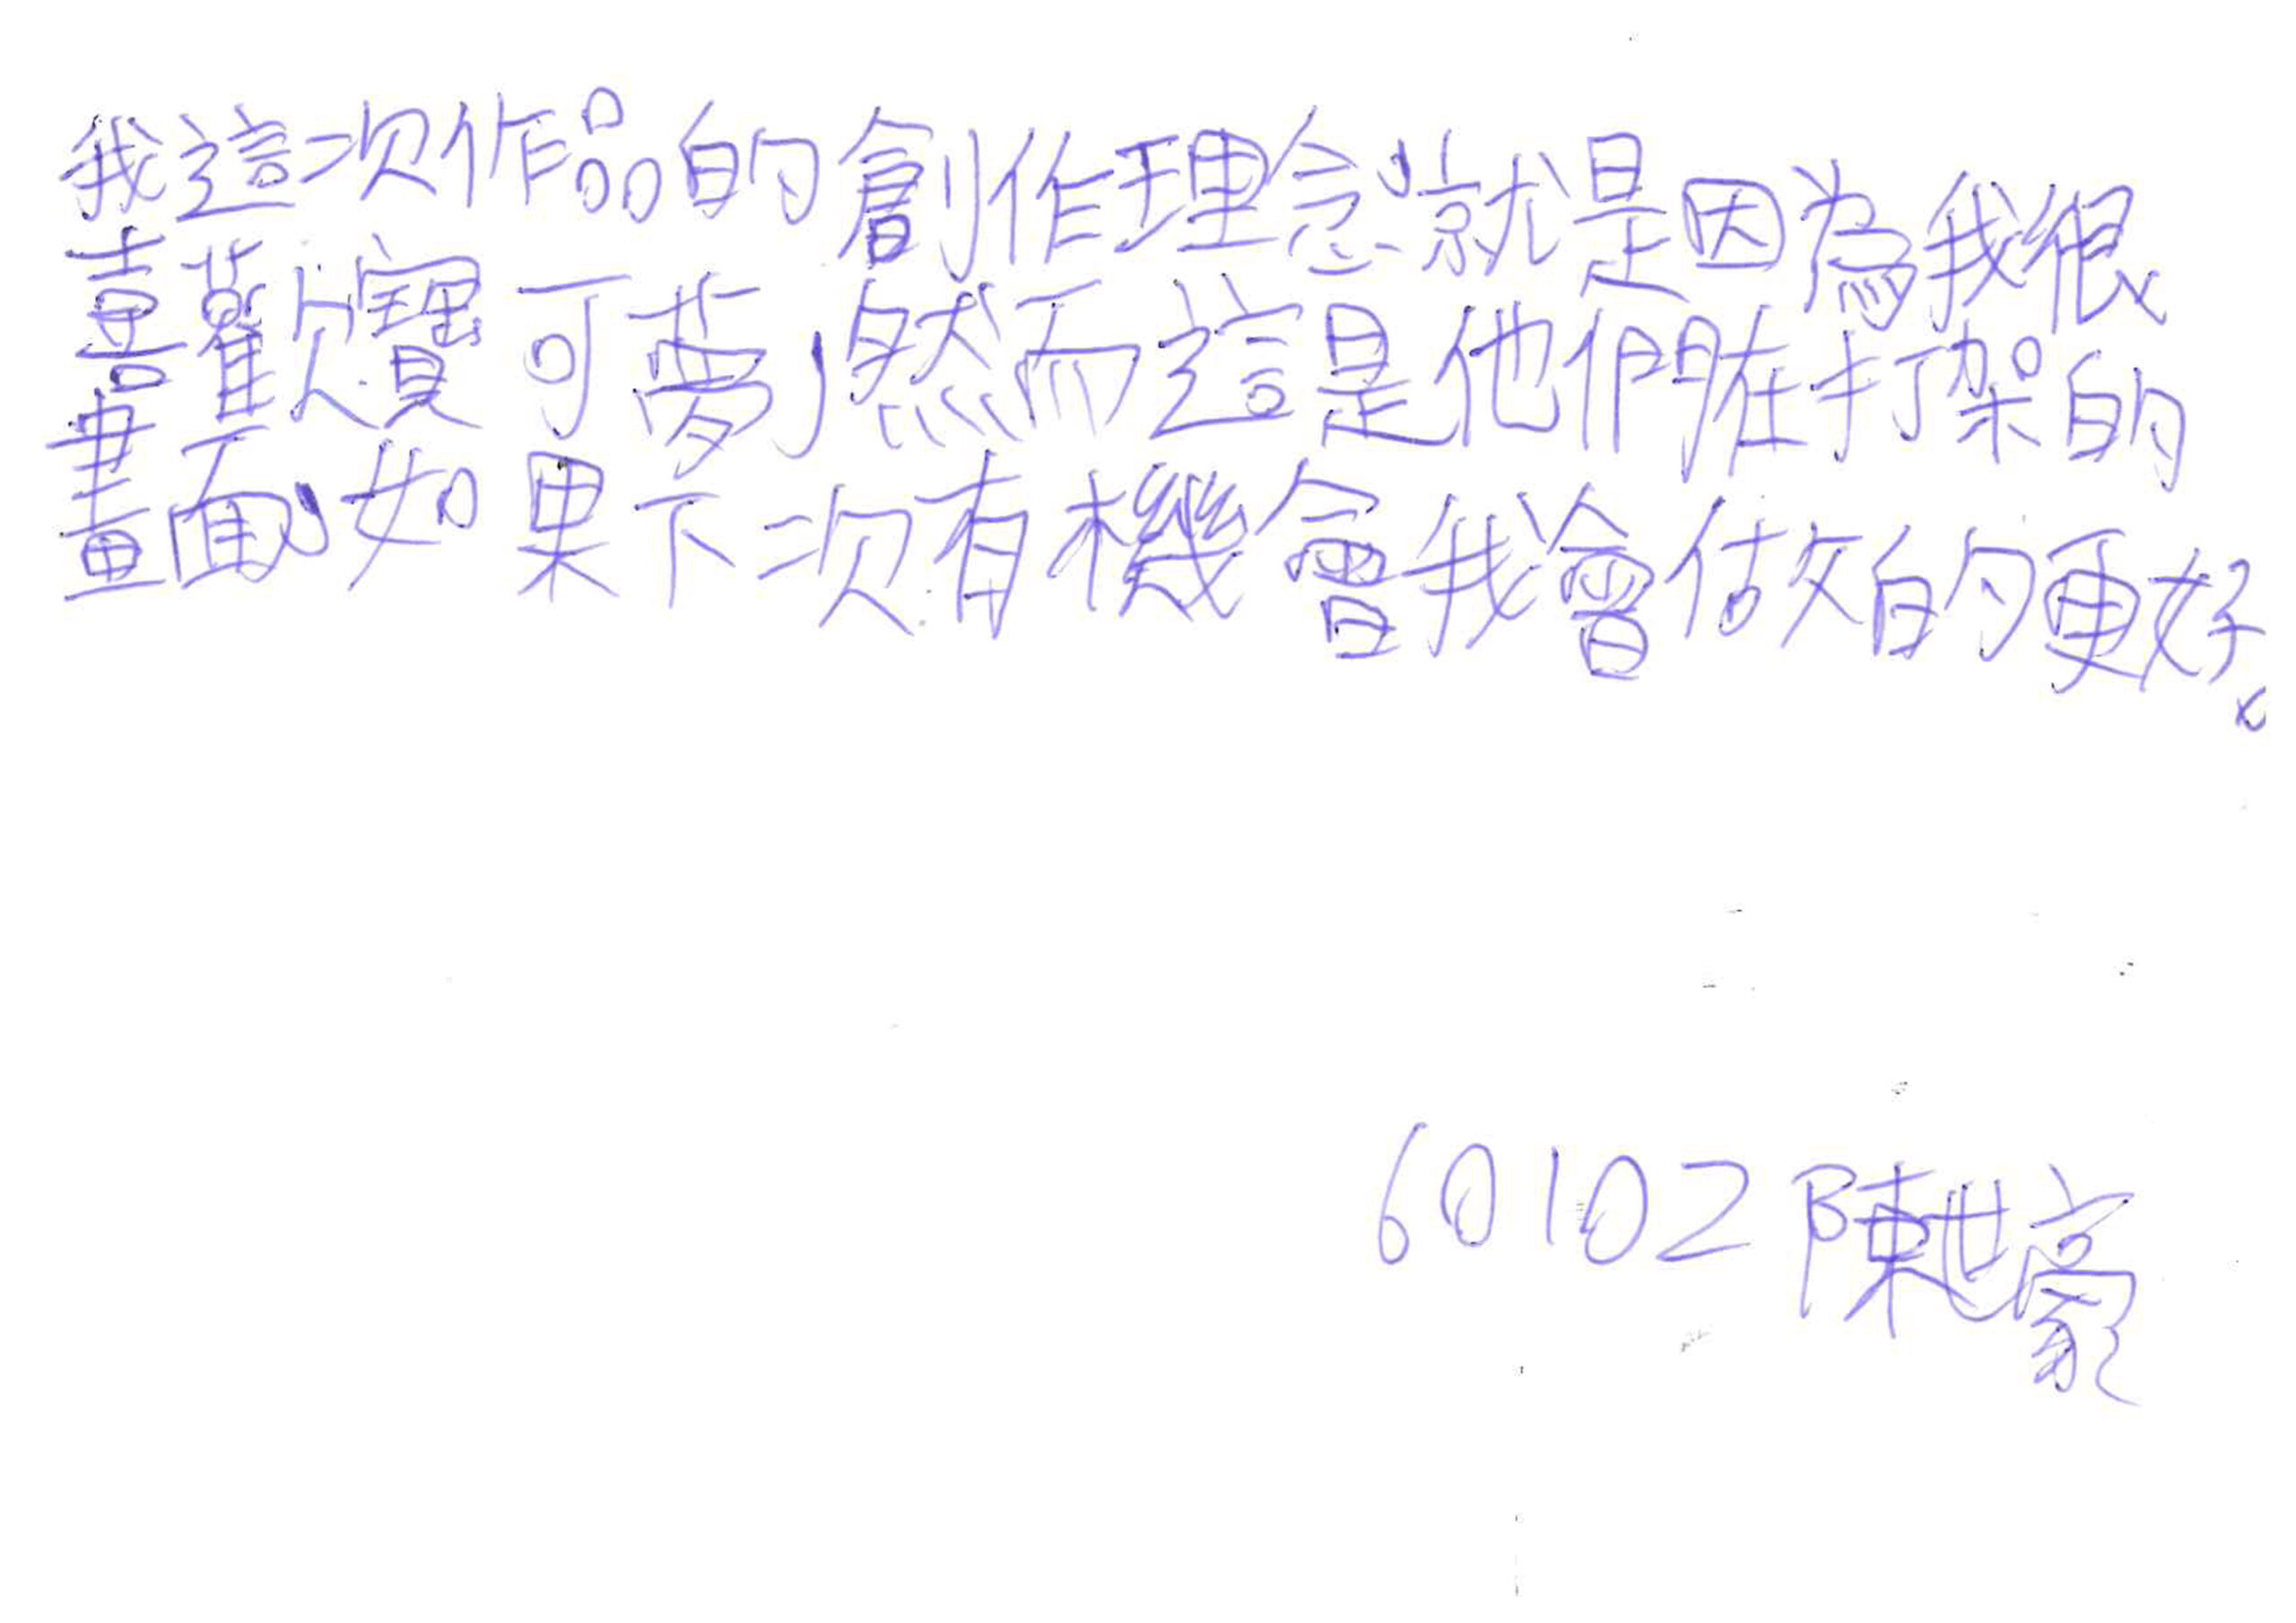 我這次作品的創作理念,就是因為我很
喜歡寶可夢,然而這是他們在打架的
畫面,如果下次有機會我會做的更好。
60102陳世豪